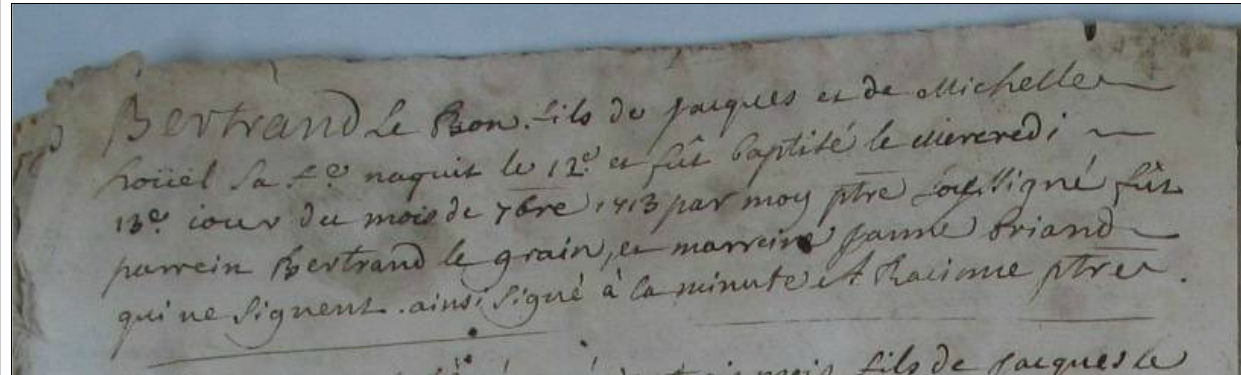 Bertrand Le Bon. fils de jacques et de Michelle
hoüel sa fe naquit le 12e et fût baptisé le Mercredi
13e iour du mois de 7bre 1713 par moy ptre soussigné fût
parrein Bertrand le grain, et marreine janne briand
qui ne signent. ainsi signé à la minute Racinne ptre.
fils de jacques le